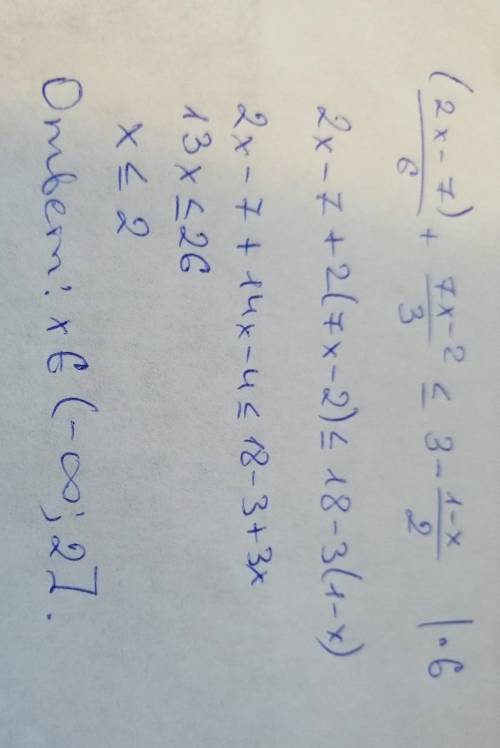 (2x-7)/6 + 7x-2/3 ≤ 3 - 1-x/2 |·6
2x-7+2(7x-2)≤18-3(1-x)
2x-7+14x-4≤18-3+3x
13x≤26
x≤2
Ответ: x∈(-∞; 2].